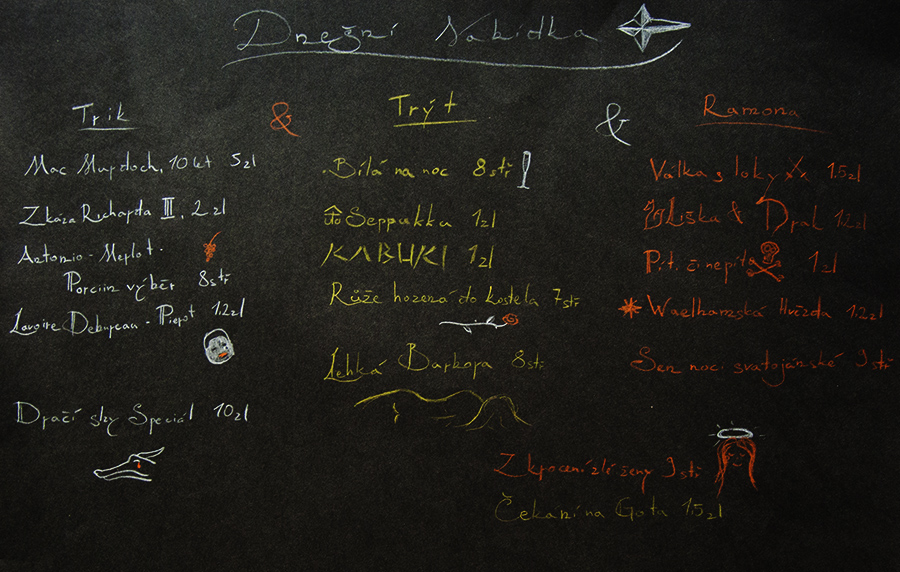 Dnešní Nabídka
Trik
&
Trýt
&
Ramona
Mac Murdoch, 10 let 5zl
Zkáza Richarda III, 2zl
Antonio - Merlot
Porciin výběr 8stř
Lavoire Debureau - Pierot 1.2zl
Dračí slzy Speciál 10zl
Bílá na noc 8stř
Seppukku 1zl
KABUKI 1zl
Růže hozená do kostela 7stř
Lehká Barbora 8stř
Válka s loky xx 1.5zl
Liška & Drak 1.2zl
Pít či nepít 1zl
Waelhamská Hvězda 1.2zl
Sen noci svatojánské 9stř
Zkrocení zlé ženy 9stř
Čekání na Gota 1.5zl